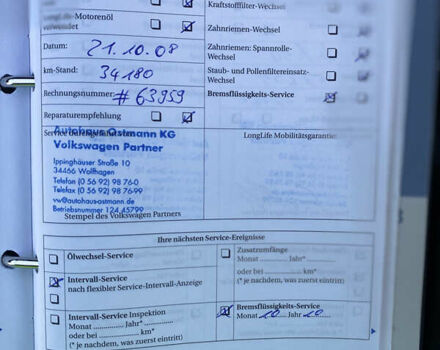 Kraftstofffilter-Wechsel
LongLife-Motorenöl
verwendet
Zahnriemen-Wechsel
Datum: 21.10.08
Zahnriemen: Spannrolle-
Wechsel
km-Stand: 34180
Staub- und Pollenfiltereinsatz-
Wechsel
Rechnungsnummer: #63959
Bremsflüssigkeits-Service
Reparaturempfehlung
Service durchgeführt
LongLife Mobilitätsgarantie:
Autohaus Ostmann KG
Volkswagen Partner
Ippinghäuser Straße 10
34466 Wolfhagen
Telefon (0 56 92) 98 76-0
Telefax (0 56 92) 98 76-99
vw@autohausostmann.de
Betriebsnummer 124 45799
Stempel des Volkswagen Partners
Ihre nächsten Service-Ereignisse
Ölwechsel-Service
Zusatzumfänge
Monat ............ Jahr* ............
oder bei ............ km*
(* je nachdem, was zuerst eintritt)
Intervall-Service
nach flexibler Service-Intervall-Anzeige
Intervall-Service Inspektion
Monat ............ Jahr* ............
oder bei ............ km*
(* je nachdem, was zuerst eintritt)
Bremsflüssigkeits-Service
Monat 10 Jahr 10